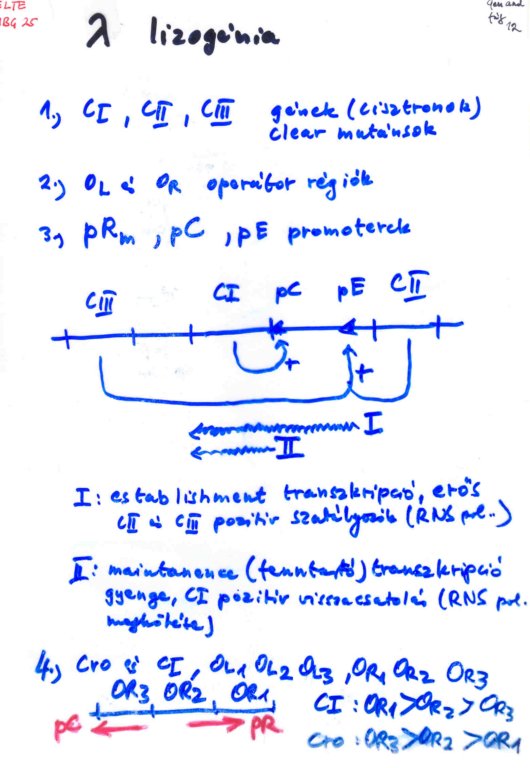 ELTE
MBG 25
λ lizogénia
1., CI, CII, CIII gének (cisztronok)
clear mutánsok
2., OL és OR operátor régiók
3., pRm, pC, pE promoterek
CIII CI pC pE CII
+ +
I
II
I: establishment transzkripció, erős
CII és CIII pozitív szabályozók (RNS pol..)
II: maintanence (fenntartó) transzkripció
gyenge, CI pozitív visszacsatolás (RNS pol.
megkötése)
4., Cro és CI, OL1 OL2 OL3, OR1 OR2 OR3
OR3 OR2 OR1 CI: OR1>OR2>OR3
pC pR cro: OR3>OR2>OR1